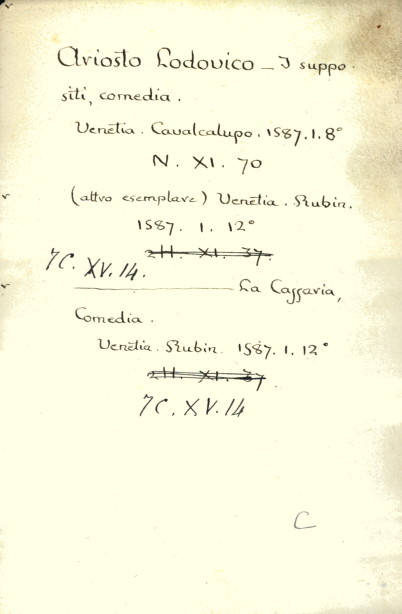 Ariosto Lodovico _ I suppo.
siti, comedia.
Venetia. Cavalcalupo. 1587. 1. 8°
N. XI. 70
(altro esemplare) Venetia. Rubin.
1587. 1. 12°
2H. XI. 37.
7C. XV. 14.
La Cassaria,
Comedia.
Venetia. Rubin. 1587. 1. 12°
2H. XI. 37.
7C. XV. 14
C